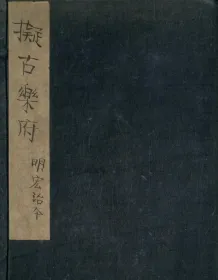 擬古樂府
明宏治本